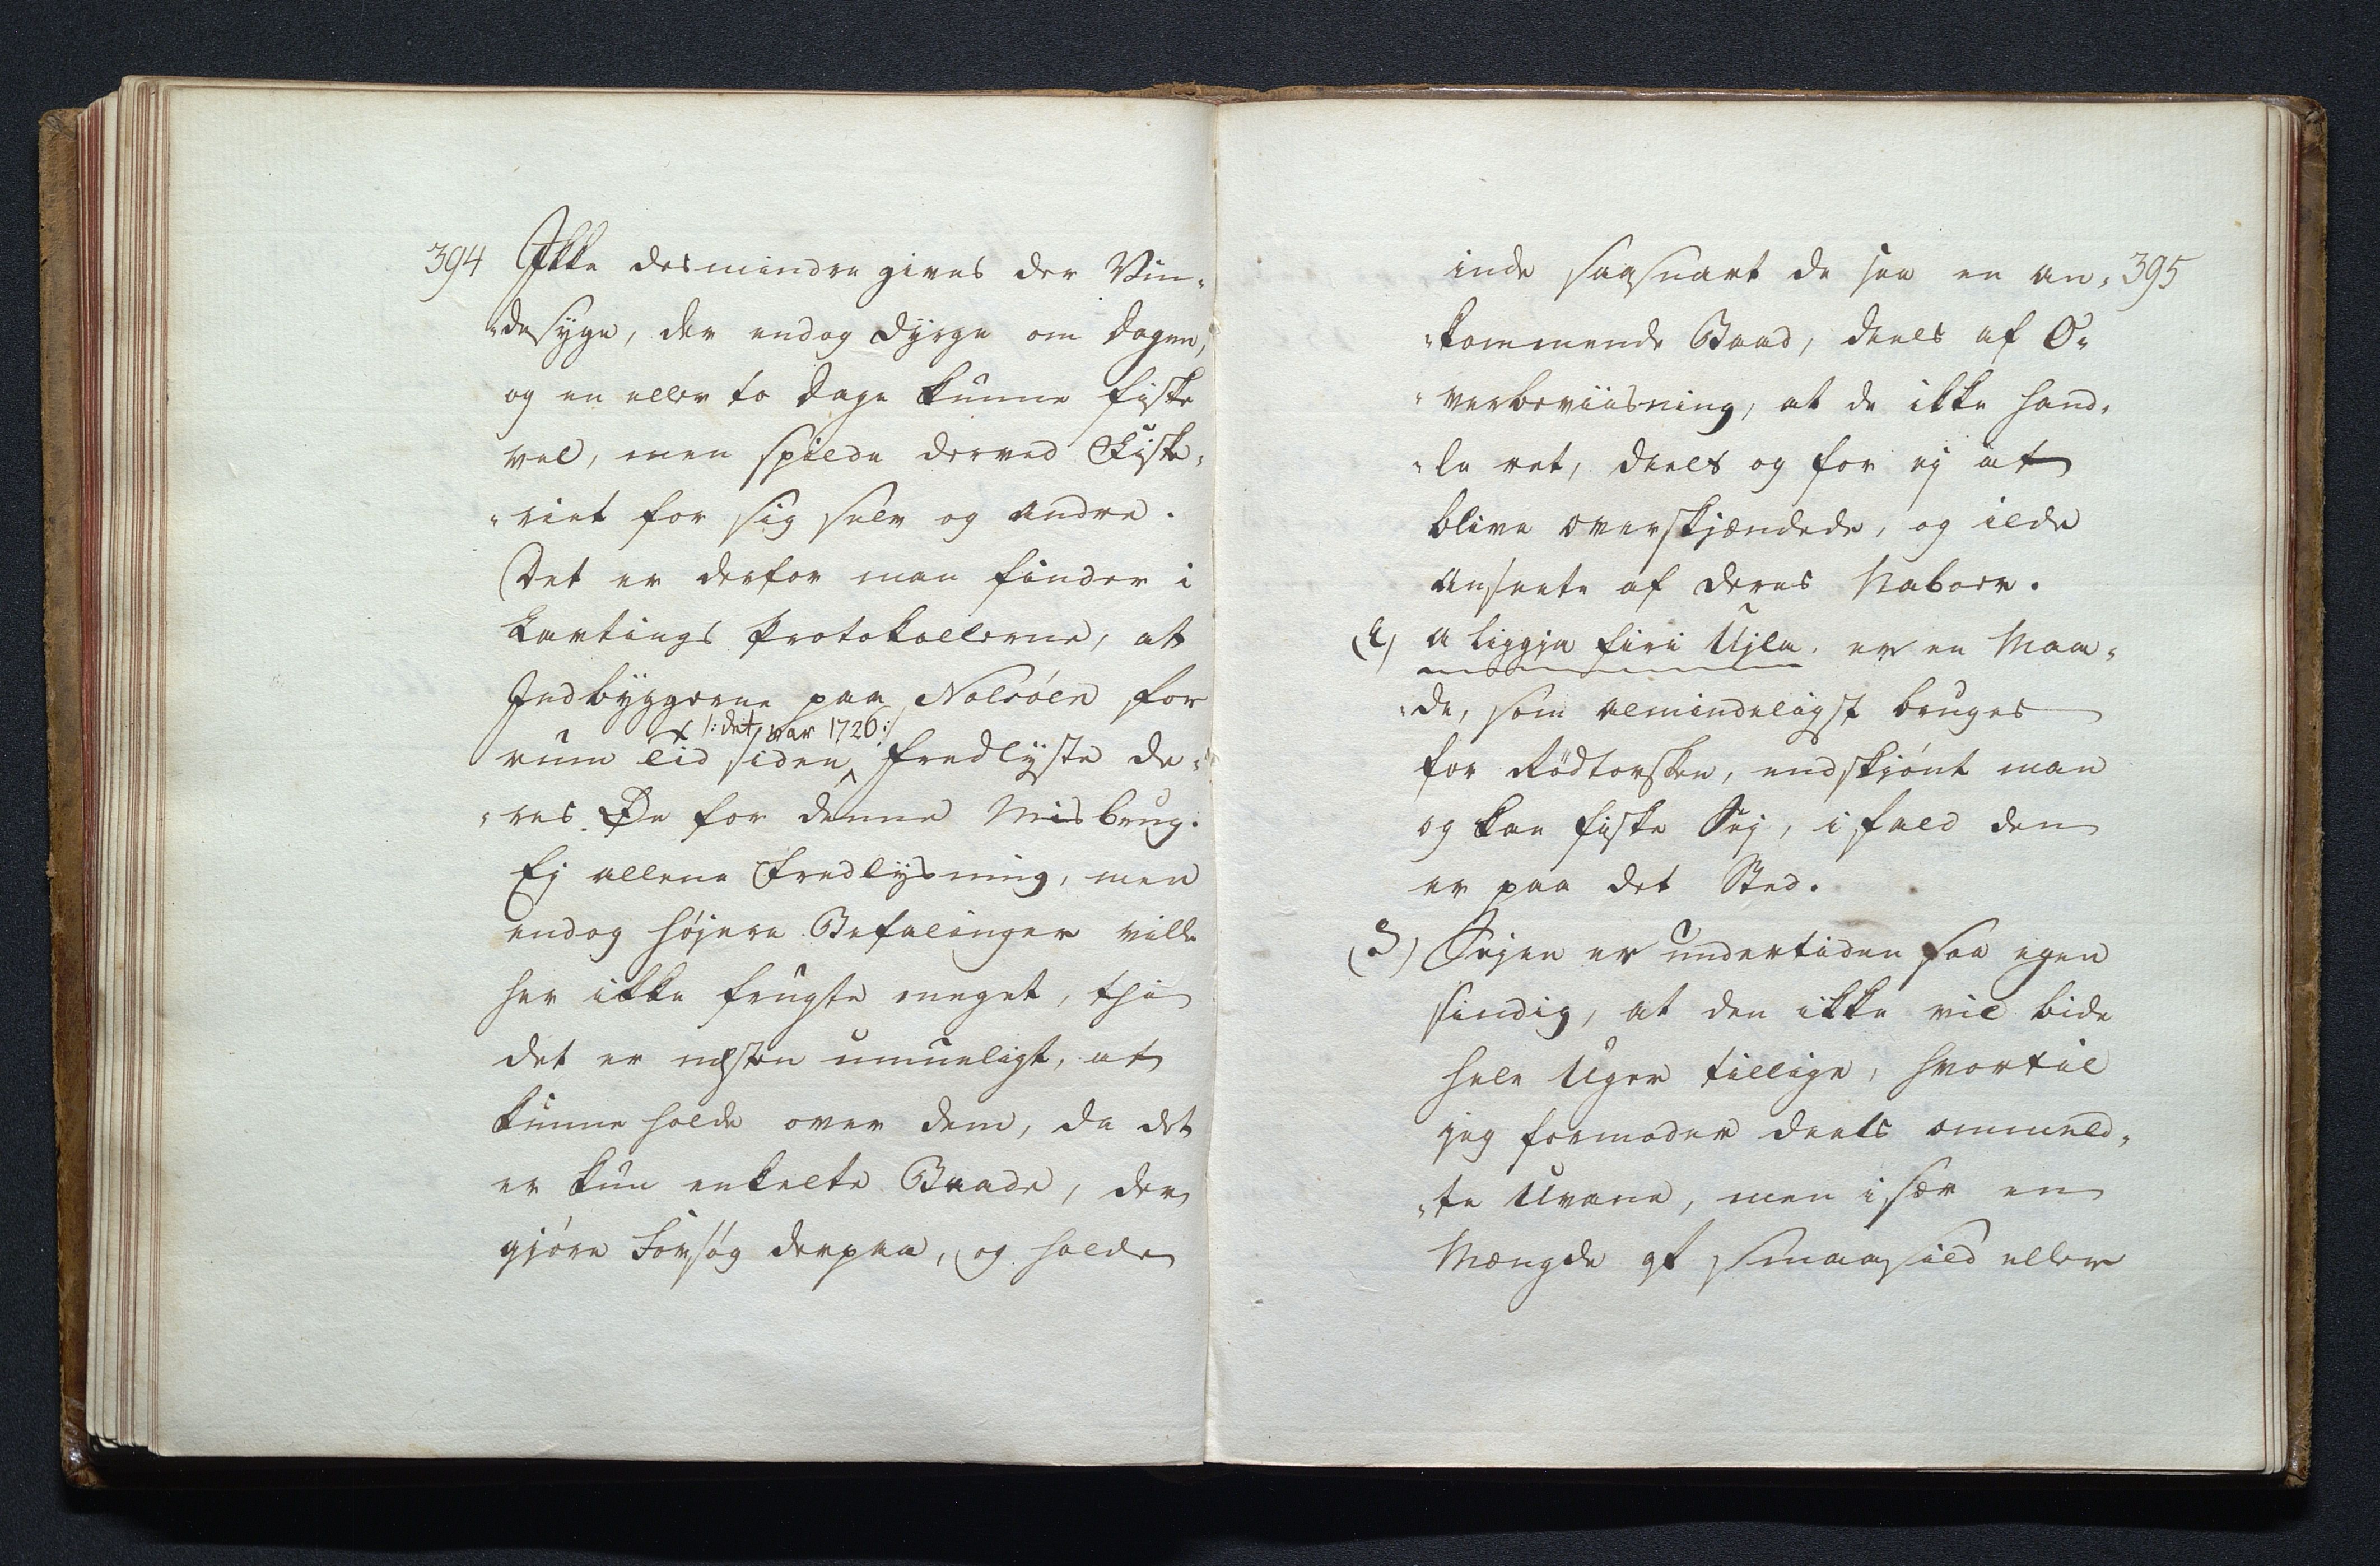 394
Ikke desmindre gives der Vin-
-desyge, der endog dÿrge om Dagen,
og en eller to Dage kunne fiske
vel, men spilde derved Fiske-
-riet for sig selv og andre.
Det er derfor man finder i
Lavtings Protokollerne, at
Indbÿggerne paa Nolsöen for
/: det var 1726:/
rum Tid siden fredlÿste de-
-res Øe for denne Misbrug.
Ej allene Fredlÿsning, men
endog höjere Befalinger ville
her ikke frugte meget, thi
det er næsten umueligt, at
kunne holde over dem, da det
er kun enkelte Baade, der
gjöre Forsög derpaa, og holde
395
inde saasnart de see en an-
-kommende Baad, deels af O-
-verbeviisning, at de ikke hand-
-le ret, deels og for ej at
blive overskjændede, og ilde
anseete af deres Naboer.
(2) a liggja firi Ujla. er en Maa-
-de, som almindeligst bruges
for Rödtorsken, endskjönt man
og kan fiske Sej, ifald den
er paa det Sted.
(3) Sejen er undertiden saa egen
sindig, at den ikke vil bide
hele Uger tillige, hvortil
jeg formoder deels ommeld-
-te Uvane, men især en
Mængde af smaasild eller